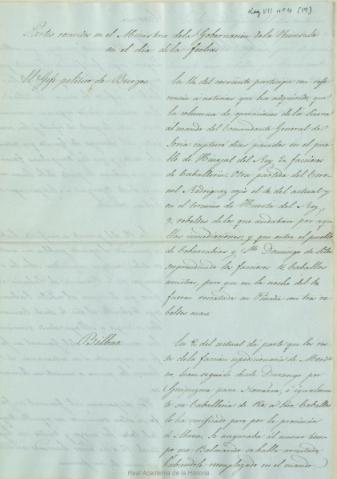 Leg VII nº 4 (19)
Partes recividos en el Ministerio de la Gobernacion de la Peninsula
en el dia de la fecha
El Gefe politico de Burgos
En 14 del corriente participa con refe-
rencia a noticias que ha adquirido, que
la columna de operaciones de la Sierra
al mando del Comandante General de
Soria capturó dias pasados en el pue-
blo de del Rey, facciosos
de caballeria. Otra partida del Coro-
nel Rodriguez cojió el 11 del actual y
en el termino de Huerta del Rey,
2 rebeldes de los que andaban por aque-
llas inmediaciones, y que entre el pueblo
de y Sto Domingo de Silos
sorprendieron los facciosos caballos
nuestros, pero que en la noche del
fueron rescatados en con tres re-
beldes mas
Bilbao
En 12 del actual da parte que los res-
tos de la faccion espedicionaria de
han seguido desde Durango por
Guipuzcoa para Navarra, è igualmen-
te su caballeria de caballos
lo ha verificado pero por la provincia
de Alava. Se asegura al mismo tiem-
po que Balmaseda se halla arrestado
habiendole reemplazado en el mando
Real Academia de la Historia